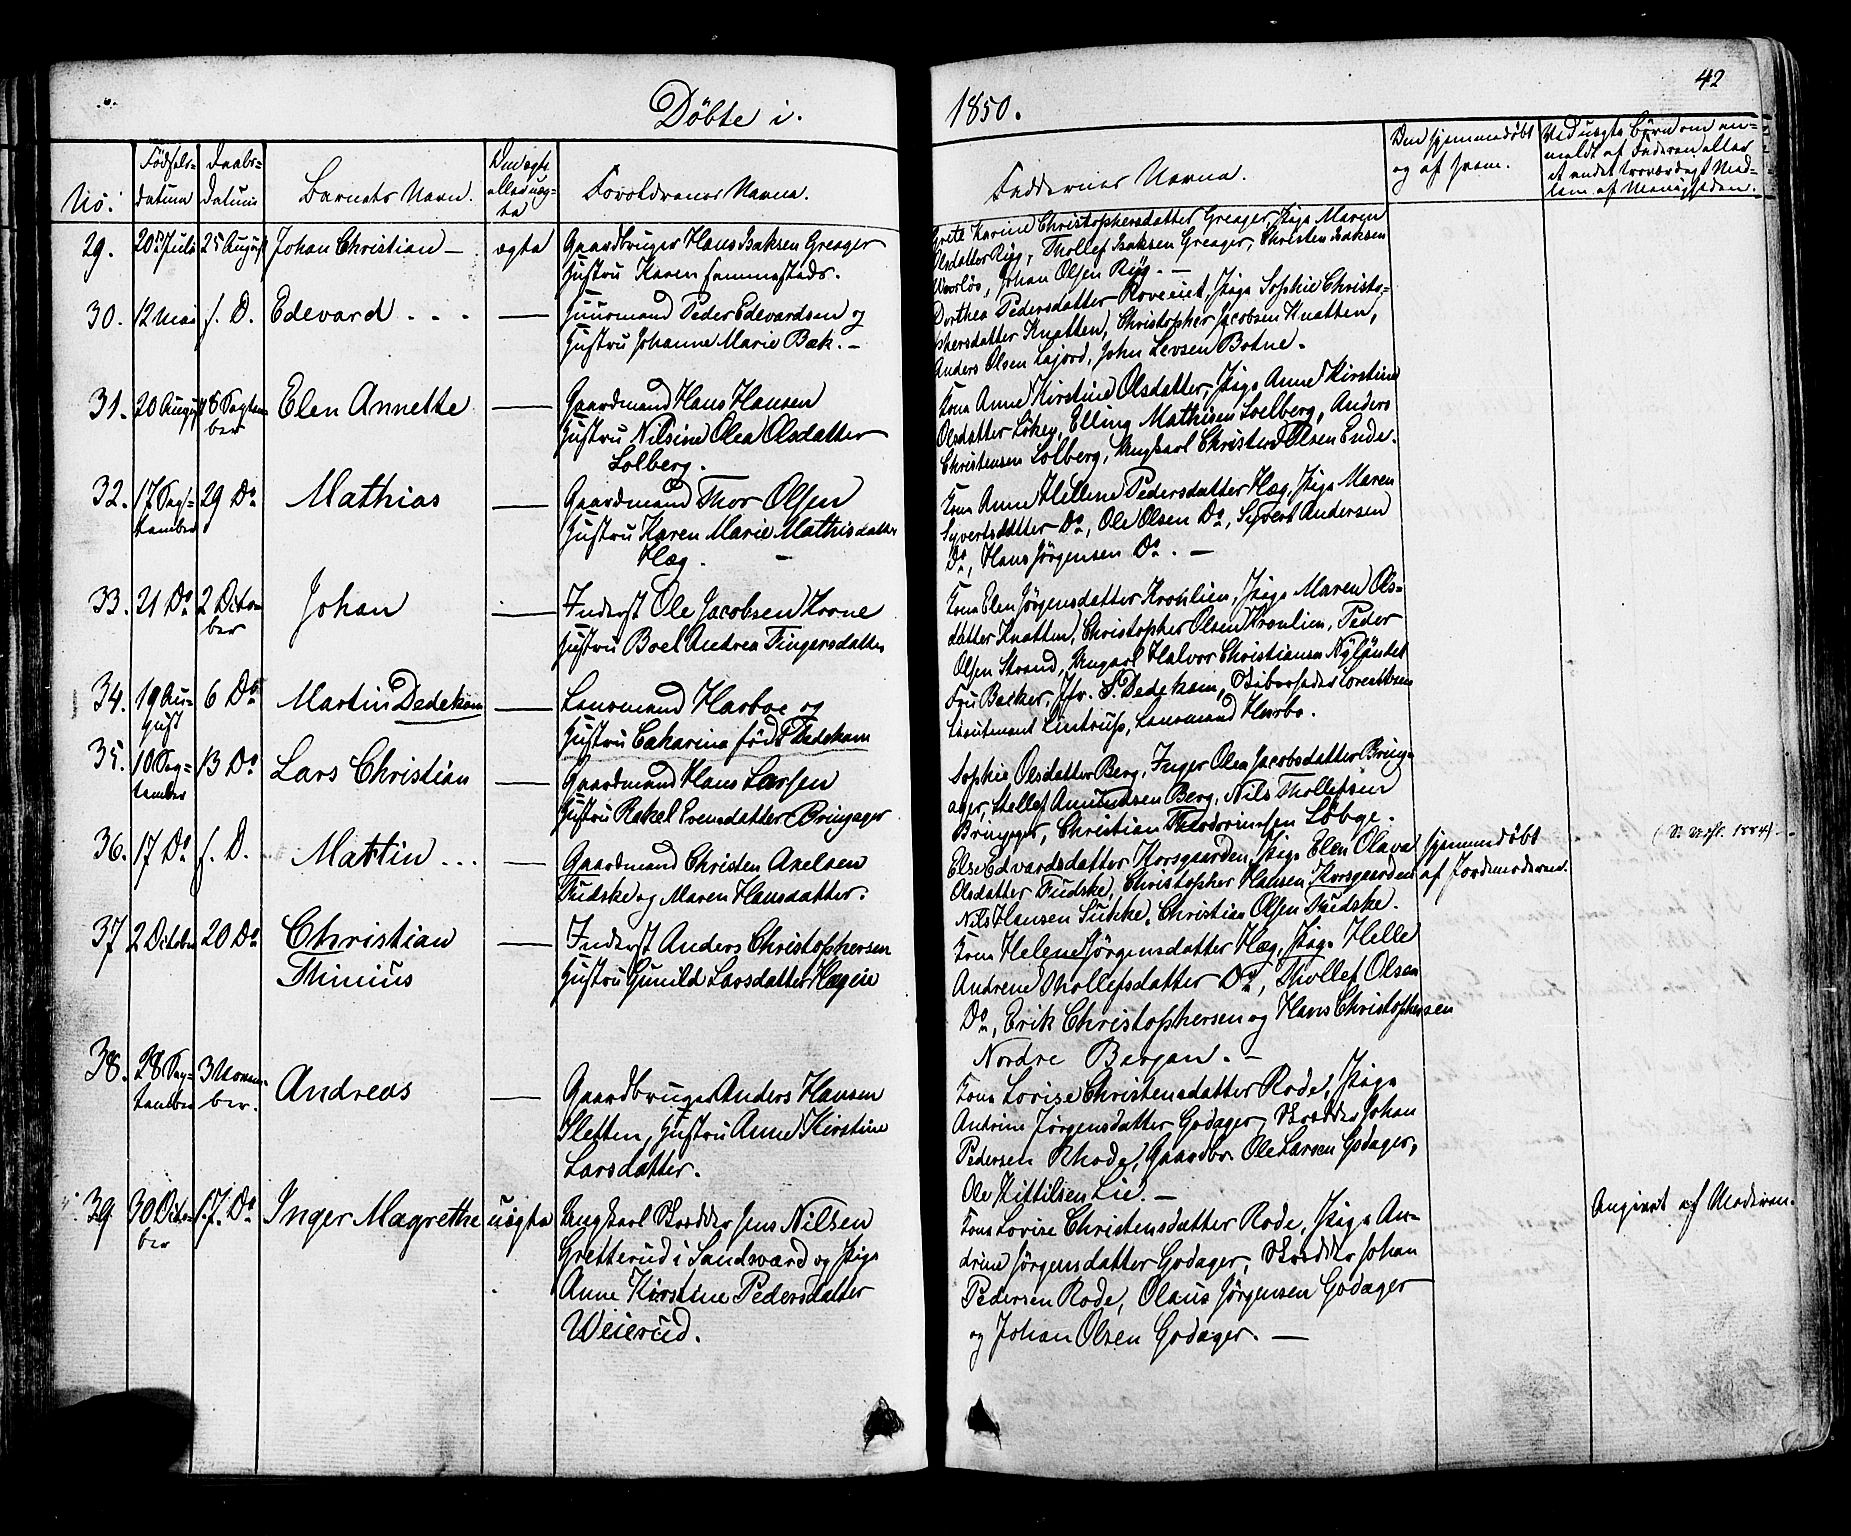 Döbte i.
1850.
42
No.
Födsels-
datum
Daabs-
datum
Barnets Navn.
Om ægte
eller uæg-
te
Forældrenes Navne.
Faddernes Navne.
Om hjemmedöbt
og af hvem.
Ved uægte Börn om an-
meldt af Faderen eller
et andet troværdigt Med-
lem af Menigheden.
29. 20de Juli 25 August Johan Christian — ægte
Gaardbruger Hans Isaksen Greager
Hustru Karen Semmestads.
Grete Karine Christophersdatter Greager, Pige Maren
Olsdatter Ryg, Thollef Isaksen Greager, Christen Isaksen
Johan Olsen Ryg. —
30. 12 Mai s. D. Edevard . . . —
Huusmand Peder Edevardsen og
Hustru Johanne Marie Bæk. —
Dorthea Pedersdatter Pige Sophie Christo-
phersdatter Knatten, Christopher Jacobsen Knatten,
Anders Olsen Lajord, John Levsen Botne.
31. 20 August 8 Septem-
ber
Elen Annette —
Gaardmand Hans Hansen
Hustru Nilsine Olea Olsdatter
Solberg.
Kone Anne Kirstine Olsdatter, Pige Anne Kirstine
Olsdatter Löken, Elling Mathisen Solberg, Anders
Christensen Solberg, Ungkarl Christen Olsen Ende.
32. 17 Sep-
tember
29 Do
Mathias —
Gaardmand Thor Olsen
Hustru Karen Marie Mathisdatter
Hæg. —
Kone Anne Hellene Pedersdatter Hæg, Pige Maren
Syvertsdatter Do, Ole Olsen Do, Syvert Andersen
Do, Hans Jörgensen Do. —
33. 21 Do 2 Octom
ber
Johan —
Inderst Ole Jacobsen Krone
Hustru Boel Andrea Fingersdatter
Kone Elen Jörgensdatter Kronlien, Pige Maren Ols-
datter Knatten, Christopher Olsen Kronlien, Peder
Olsen Strand, Ungkarl Halvor Christiansen Nylændet
34. 19 Au-
gust
6 Do
Martin Dedekam —
Lensmand Harboe og
Hustru Catharina föd Dedekam
Fru Backer, Jfr. S. Dedekam, Lorentsen
Lieutenant Lintrup, Lensmand Harbo.
35. 10 Sep-
tember
13 Do
Lars Christian —
Gaardmand Hans Larsen
Hustru Rakel Evensdatter Bringager
Sophie Olsdatter Berg, Inger Olea Jacobsdatter Bring-
ager, Stellef Amundsen Berg, Nils Thollefsen
Bringager, Christian Theodorinusen Löbge.
36. 17 Do s. D. Martin . . . —
Gaardmand Christen Axelsen
Tudske og Maren Hansdatter.
Else Edvardsdatter Korsgaarden, Pige Elen Olava
Olsdatter Tudske, Christopher Hansen Korsgaarden
Nils Hansen Christian Olsen Tudske.
hjemmedöbt
af Jordemoderen.
37 2 October 20 Do Christian
Thinius
—
Inderst Anders Christophersen
Hustru Gunild Larsdatter Hægeie
Kone Helene Jörgensdatter Hæg, Pige Helle
Andrene Thollefsdatter Do, Thollef Olsen
Do, Erik Christophersen og Hans Christophersen
Nordre Bergan. —
38. 28 Sep-
tember
3 Novem-
ber.
Andreas —
Gaardbruger Anders Hansen
Sletten, Hustru Anne Kirstine
Larsdatter.
Kone Lovise Christensdatter Rode, Pige
Andrine Jörgensdatter Godager, Skrædder Johan
Pedersen Rhode, Gaardbr. Ole Larsen Godager,
Ole Kittilsen Lie. —
39 30 Octo-
ber
17. Do
Inger Magrethe uægte
Ungkarl Skrædder Jens Nilsen
Gretterud i Sandsværd og Pige
Anne Kirstine Pedersdatter
Weierud.
Kone Lovise Christensdatter Rode, Pige An-
drine Jörgensdatter Godager, Skrædder Johan
Pedersen Rode, Olaus Jörgensen Godager
og Johan Olsen Godager. —
Angivet af Moderen.